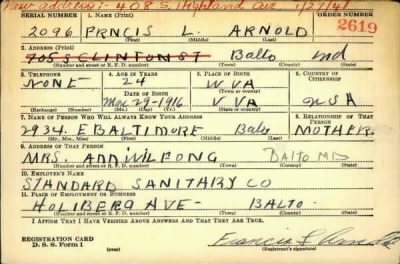 New address:- 408 S. Highland Ave 1/27/41
SERIAL NUMBER 1. NAME (Print) ORDER NUMBER
2096 PRNCIS L. ARNOLD 2619
(First) (Middle) (Last)
2. ADDRESS (Print)
705 S CLINTON ST Balto Md
(Number and street or R. F. D. number) (Town) (County) (State)
3. TELEPHONE 4. AGE IN YEARS 5. PLACE OF BIRTH 6. COUNTRY OF CITIZENSHIP
NONE 24 W VA
DATE OF BIRTH (Town or county)
Mar. 29-1916 V VA USA
(Exchange) (Number) (Mo.) (Day) (Yr.) (State or country)
7. NAME OF PERSON WHO WILL ALWAYS KNOW YOUR ADDRESS 8. RELATIONSHIP OF THAT PERSON
2934. E BALTIMORE Balto MOTHER.
(Mr., Mrs., Miss) (First) (Middle) (Last)
9. ADDRESS OF THAT PERSON
MRS. ANN WILFONG BALTO MD
(Number and street or R. F. D. number) (Town) (County) (State)
10. EMPLOYER'S NAME
STANDARD SANITARY CO
11. PLACE OF EMPLOYMENT OR BUSINESS
HOLIBERG AVE- BALTO-
(Number and street or R. F. D. number) (Town) (County) (State)
I AFFIRM THAT I HAVE VERIFIED ABOVE ANSWERS AND THAT THEY ARE TRUE.
REGISTRATION CARD
D. S. S. Form 1 (over) (Registrant's signature)
Francis L Arnold